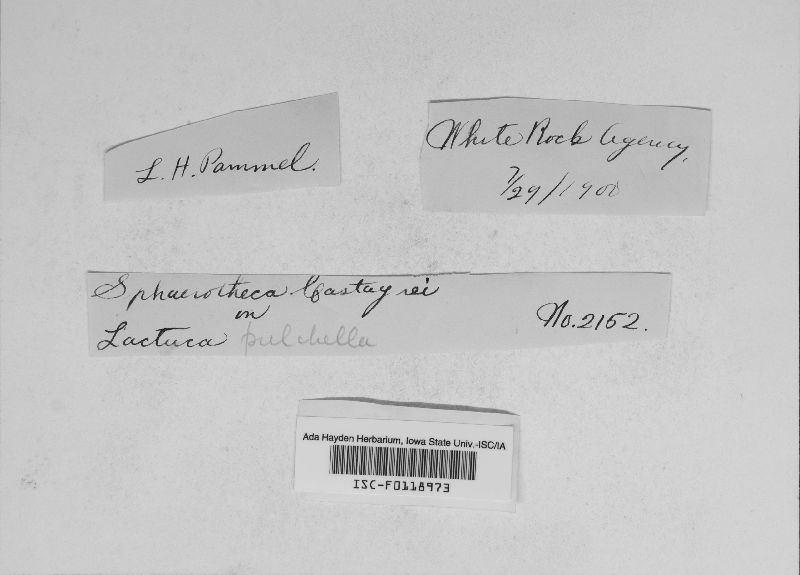 L. H. Pammel.
White Rock Agency,
7/29/1900
Sphaerotheca Castagnei
on
Lactuca pulchella
No. 2152.
Ada Hayden Herbarium, Iowa State Univ.-ISC/IA
ISC-F0118973